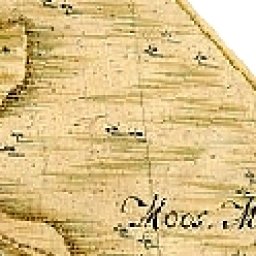 Moos. M